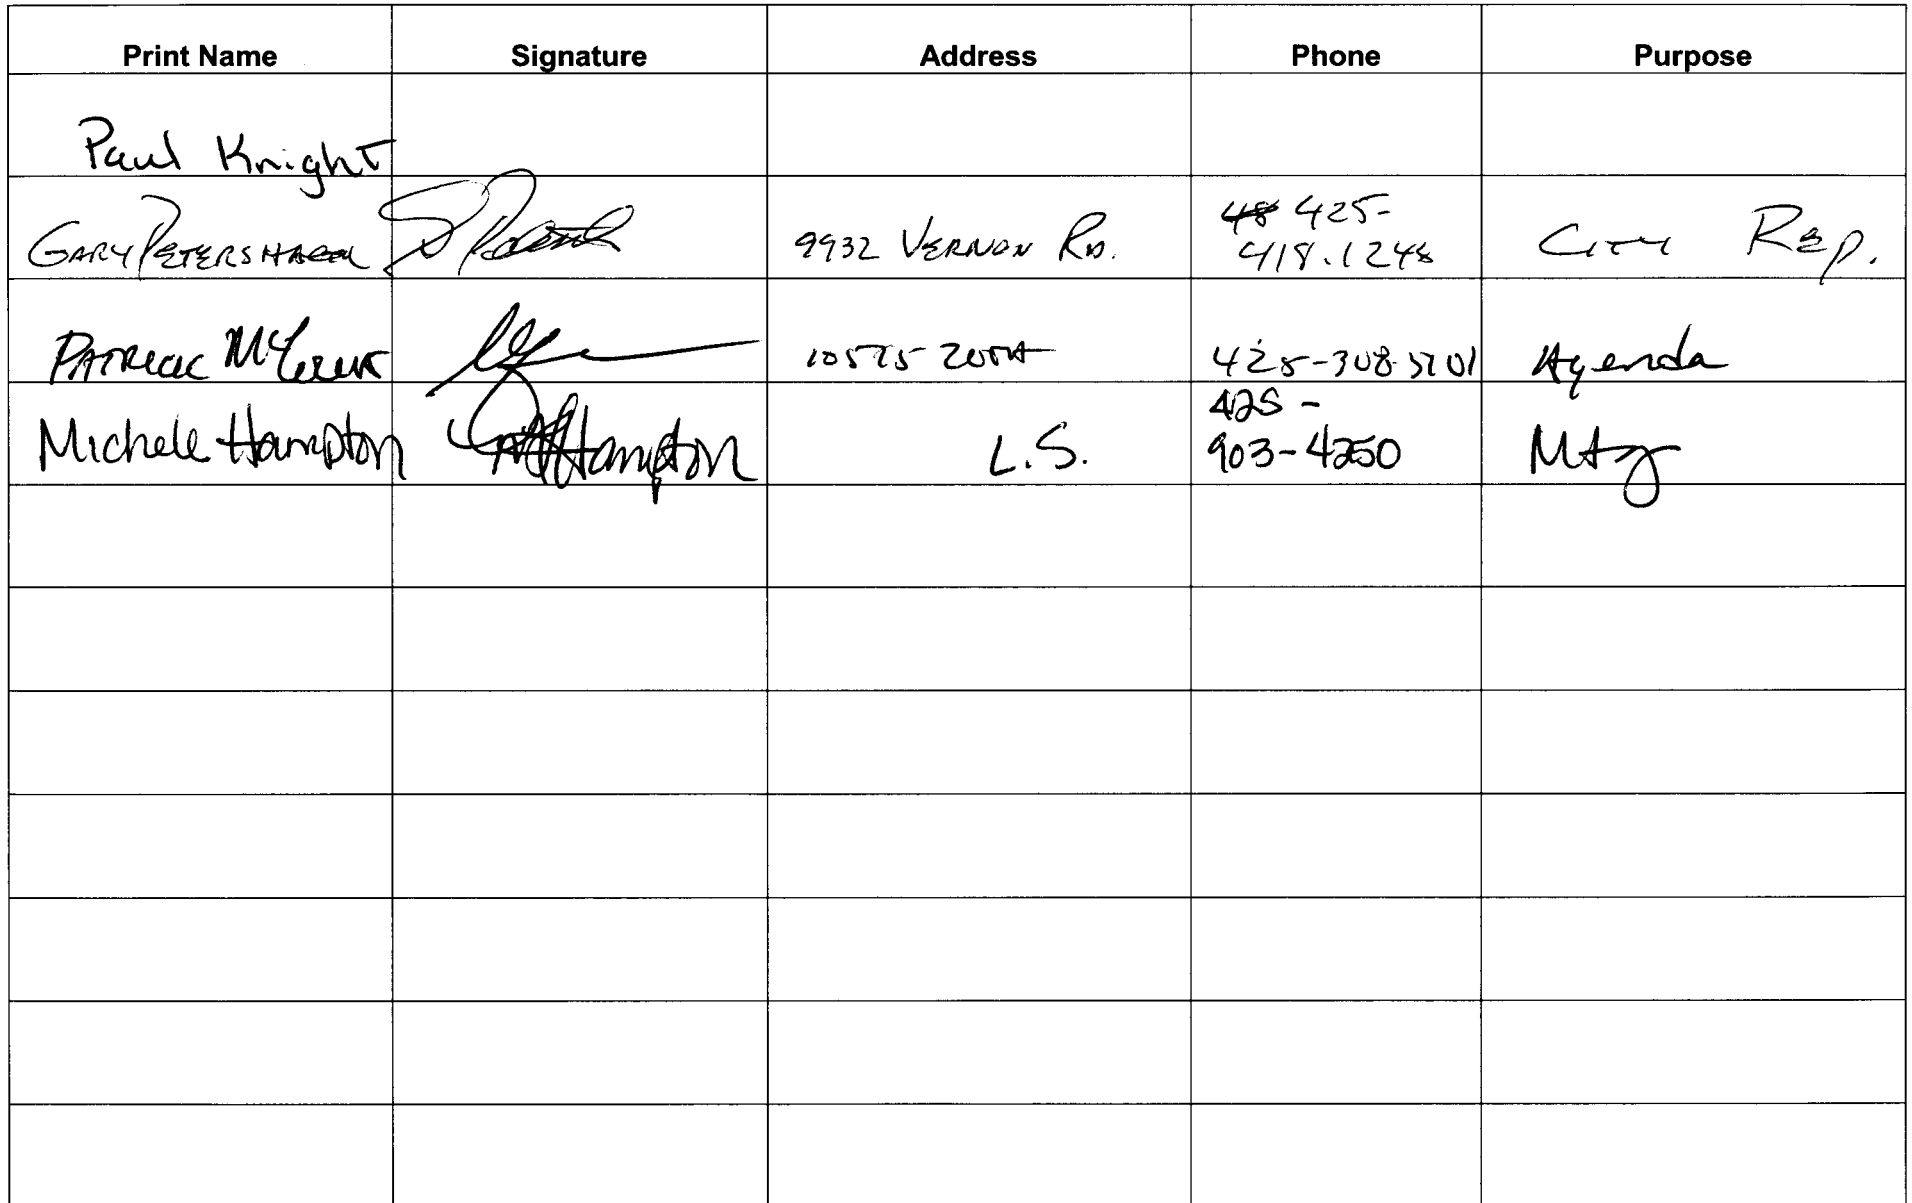 Print Name Signature Address Phone Purpose
Paul Knight
GARY PETERSHAGEN 9932 VERNON RD. 48 425-
418.1248 CITY REP.
PATRICK 10515 20TH 425-308-5701 Agenda
425-
Michele Hampton MHampton L.S. 903-4250 Mtg